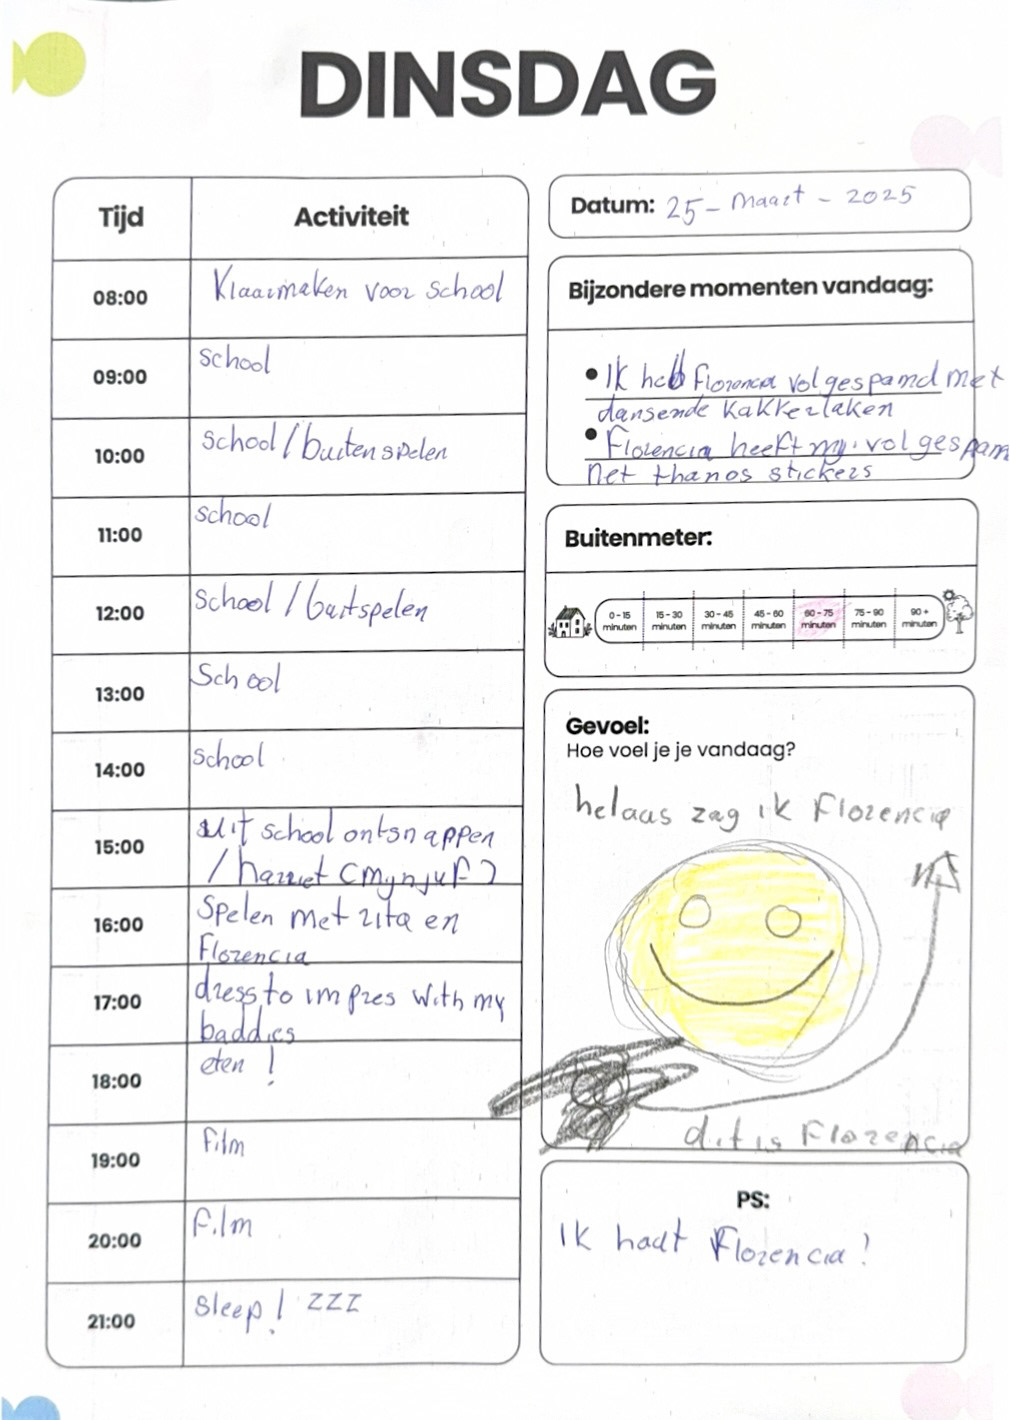 DINSDAG
Tijd
Activiteit
08:00
Klaarmaken voor school
09:00
school
10:00
school / buitenspelen
11:00
school
12:00
school / buitspelen
13:00
School
14:00
school
15:00
uit school ontsnappen
/ harriet (mynjuf)
16:00
Spelen met zita en
Florencia
17:00
dress to impres with my
baddies
18:00
eten !
19:00
film
20:00
film
21:00
sleep! zzz
Datum: 25 - maart - 2025
Bijzondere momenten vandaag:
• Ik heb Florencia vol gespamd met
dansende kakkerlaken
• Florencia heeft mij vol gespam
net thanos stickers
Buitenmeter:
0 - 15 minuten
15 - 30 minuten
30 - 45 minuten
45 - 60 minuten
60 - 75 minuten
75 - 90 minuten
90 + minuten
Gevoel:
Hoe voel je je vandaag?
helaas zag ik Florencia
dit is Florencia
PS:
Ik haat Florencia!